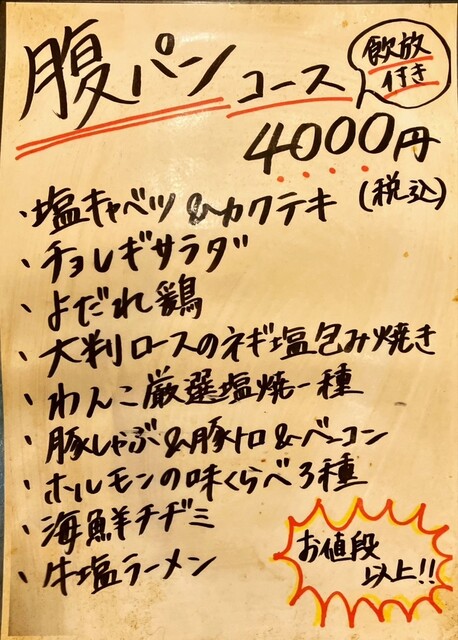 腹パンコース
飲放
付き
4000円
(税込)
・塩キャベツ&カクテキ
・チョレギサラダ
・よだれ鶏
・大判ロースのネギ塩包み焼き
・わんこ厳選塩焼一種
・豚しゃぶ&豚トロ&ベーコン
・ホルモンの味くらべ3種
・海鮮チヂミ
・牛塩ラーメン
お値段
以上!!